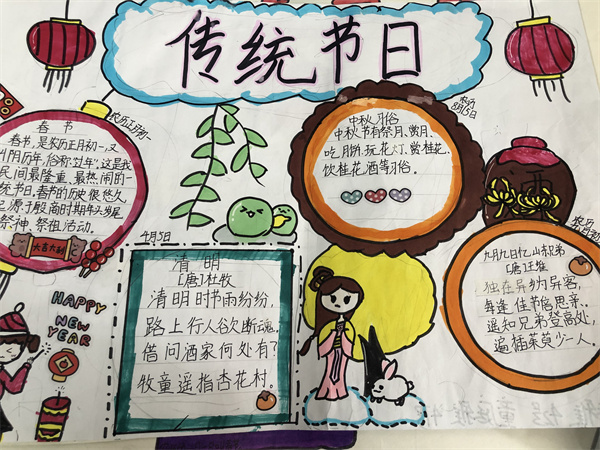 传统节日
农历正月初一
春节
春节,是农历正月初一,又
叫阴历年,俗称"过年",这是我
民间最隆重、最热闹的
统节日。春节的历史很悠久,
起源于殷商时期年头岁尾
祭神、祭祖活动。
大吉大利
HAPPY
NEW
YEAR
4月5日
清明
[唐]杜牧
清明时节雨纷纷,
路上行人欲断魂。
借问酒家何处有?
牧童遥指杏花村。
农历
8月15日
中秋习俗
中秋节有祭月、赏月、
吃月饼、玩花灯、赏桂花、
饮桂花酒等习俗。
酒
农历
九月九日忆山东兄弟
[唐]王维
独在异乡为异客,
每逢佳节倍思亲。
遥知兄弟登高处,
遍插茱萸少一人。